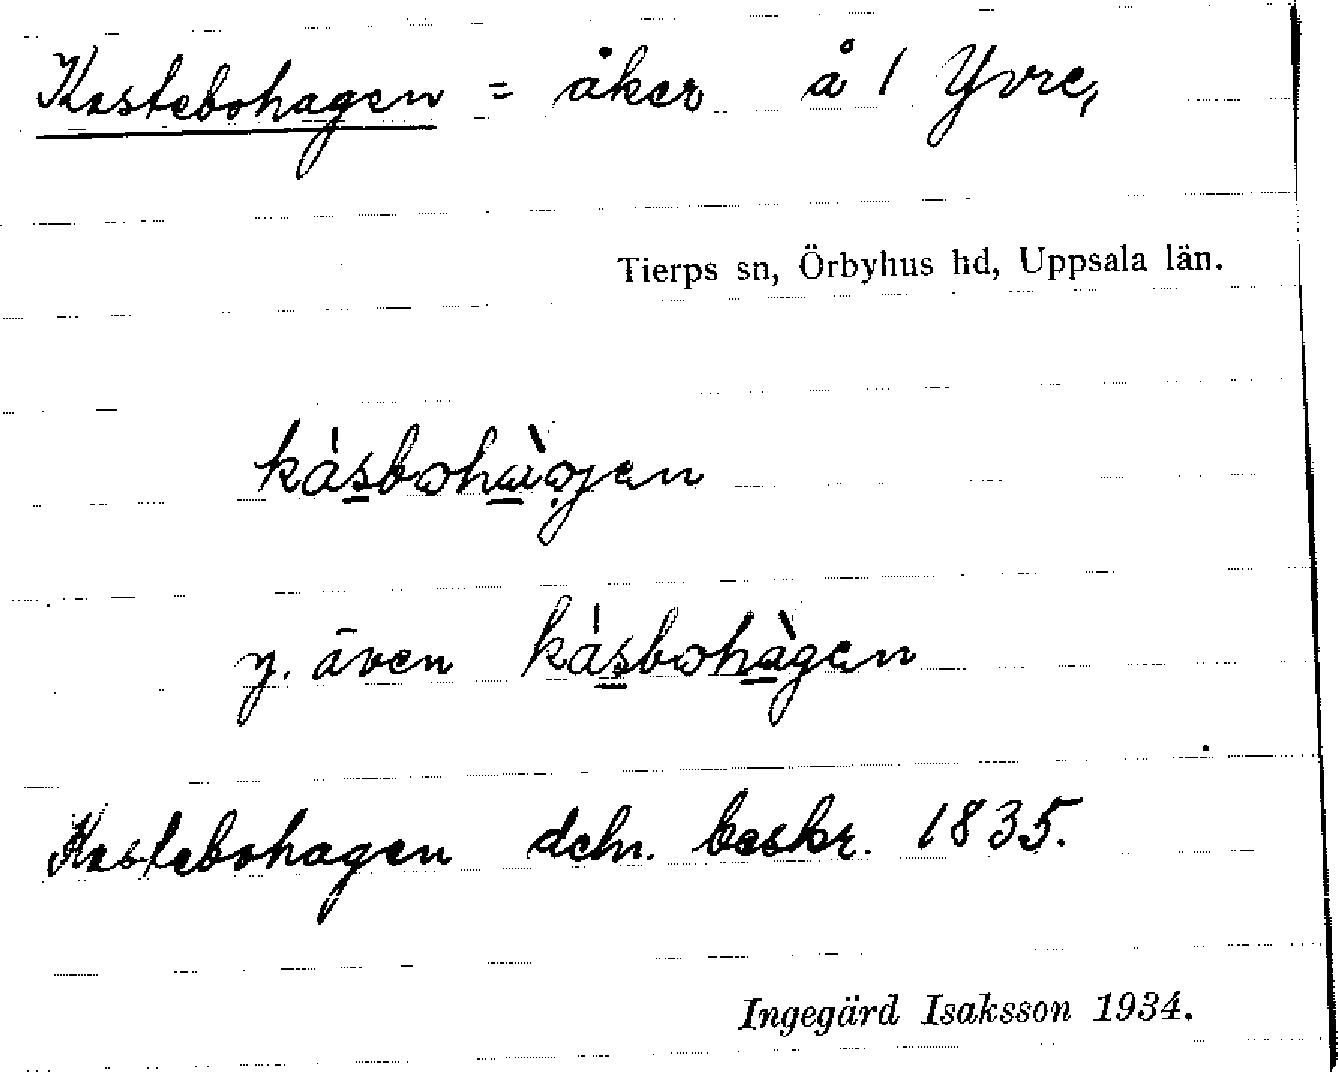 Kastebohagen = åker å 1 Yvre,
Tierps sn, Örbyhus hd, Uppsala län.
kásbohàgen
y. även kásbohàgen
Kastebohagen dchn. beskr. 1835.
Ingegärd Isaksson 1934.